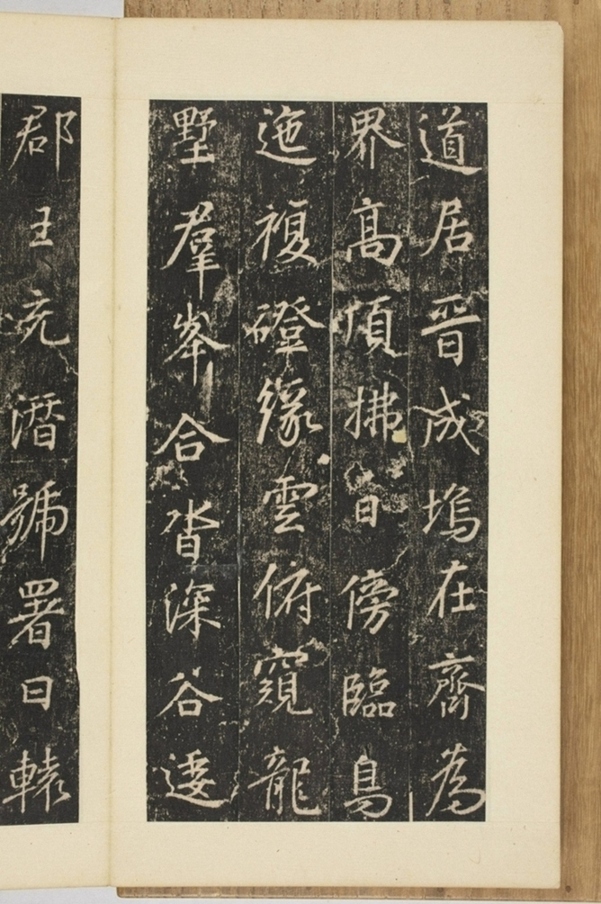 道居晉成塢在齊為
界高頂拂日傍臨鳥
迤複磴緣雲俯窺龍
墅羣峯合沓深谷逶
郡王充潛號署曰轅